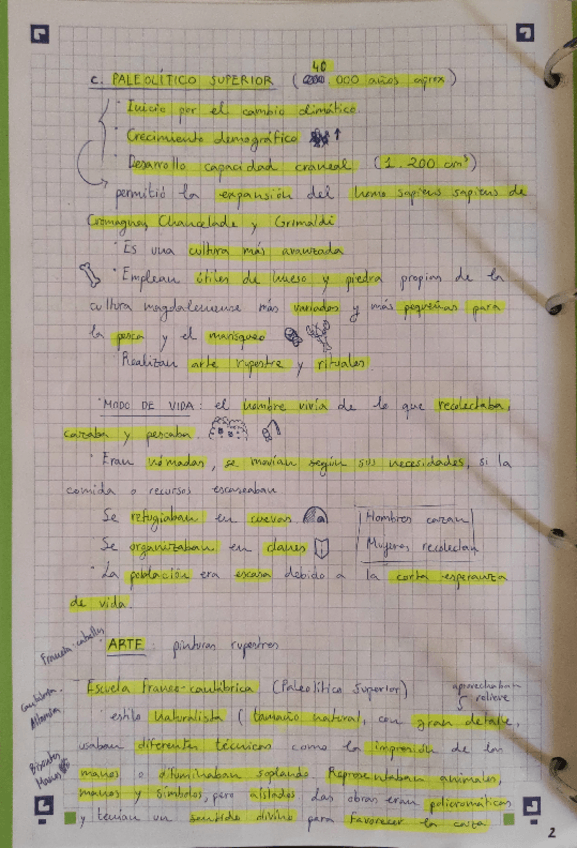 40
C. PALEOLÍTICO SUPERIOR ( .000 años aprox)
· Inicio por el cambio climático.
· Crecimiento demográfico ↑
· Desarrollo capacidad craneal (1.200 cm³)
permitió la expansión del homo sapiens sapiens de
Cromagnon, Chancelade y Grimaldi.
· Es una cultura más avanzada
· Emplean útiles de hueso y piedra propios de la
cultura magdaleniense más variados y más pequeños para
la pesca y el marisqueo
· Realizan arte rupestre y rituales.
· MODO DE VIDA: el hombre vivía de lo que recolectaba,
cazaba y pescaba
· Eran nómadas, se movían según sus necesidades, si la
comida o recursos escaseaban
Se refugiaban en cuevas.
Hombres cazan
Se organizaban en clanes
Mujeres recolectan
· La población era escasa debido a la corta esperanza
de vida.
Francia-caballos
· ARTE: pinturas rupestres
Escuela franco-cantábrica (Paleolítico Superior)
aprovechaban
relieve
Cantabria.
Altamira
· estilo naturalista (tamaño natural, con gran detalle,
usaban diferentes técnicas como la impresión de las
Bisontes
Manos
manos o difuminaban soplando. Representaban animales,
manos y símbolos, pero aislados. Las obras eran policromáticas
y tenían un sentido divino para favorecer la caza
2